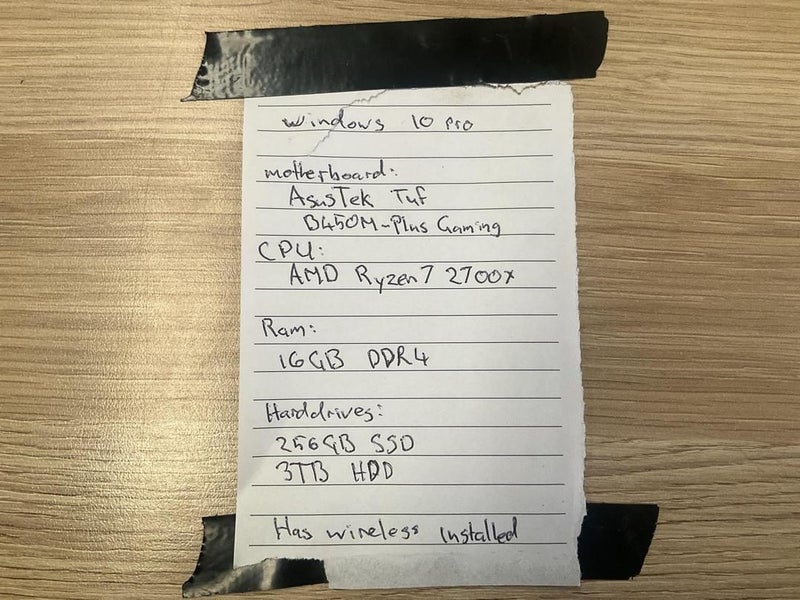 Windows 10 Pro
Motherboard:
AsusTek Tuf
B450M-Plus Gaming
CPU:
AMD Ryzen 7 2700x
Ram:
16GB DDR4
Harddrives:
256GB SSD
3TB HDD
Has wireless installed